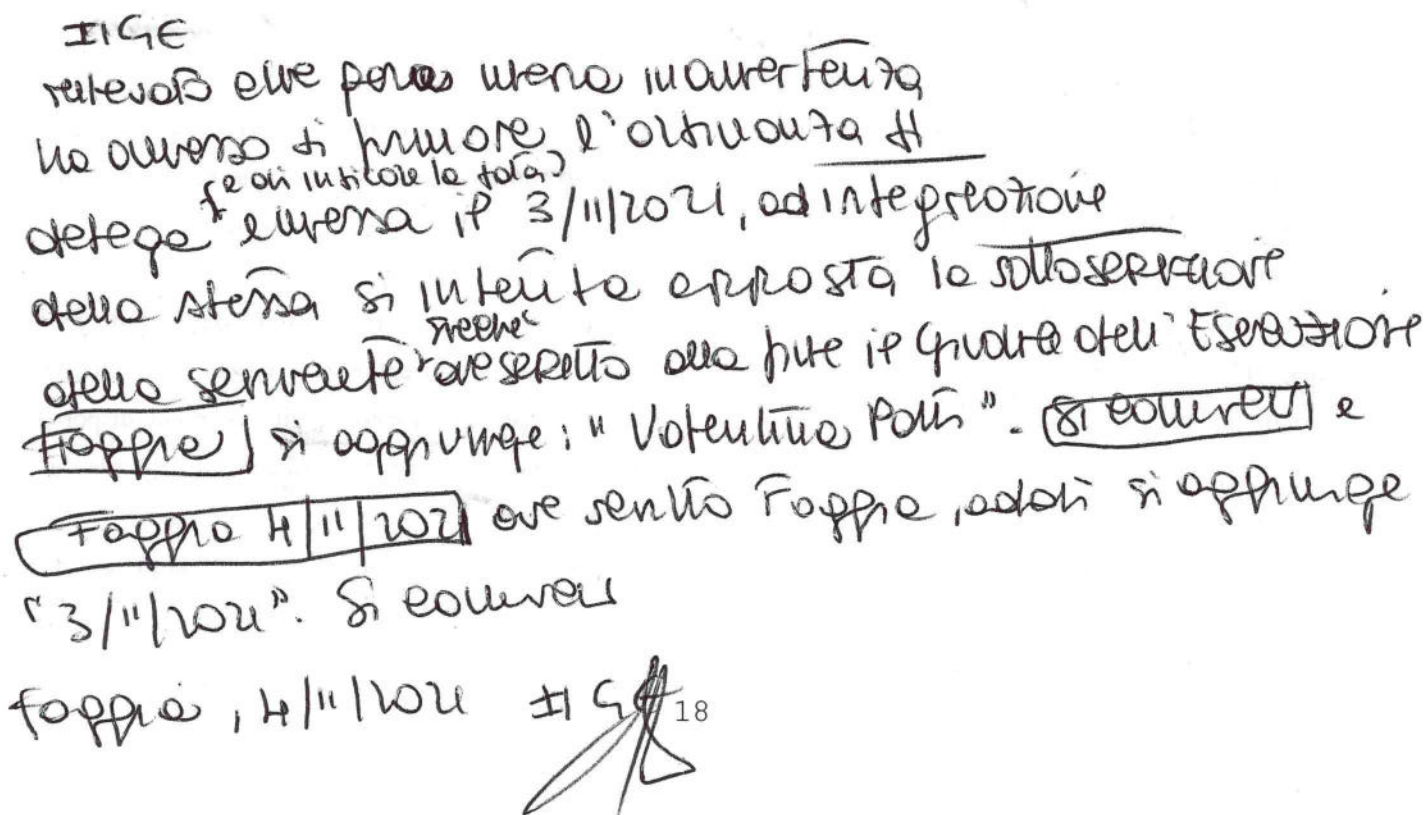 Il GE
rilevato che per mera inavvertenza
ha omesso di firmare l'ordinanza di
(e di indicare la data)
delega emessa il 3/11/2021, ad integrazione
della stessa si intenda apposta la sottoscrizione
della scrivente sicché
ove scritto alla fine il Giudice dell'Esecuzione
si aggiunge: "Valentina Patti". Si comunichi e
Foggia 4/11/2021 ove scritto Foggia, addì si aggiunge
"3/11/2021". Si comunichi
Foggia, 4/11/2021 Il GE
18